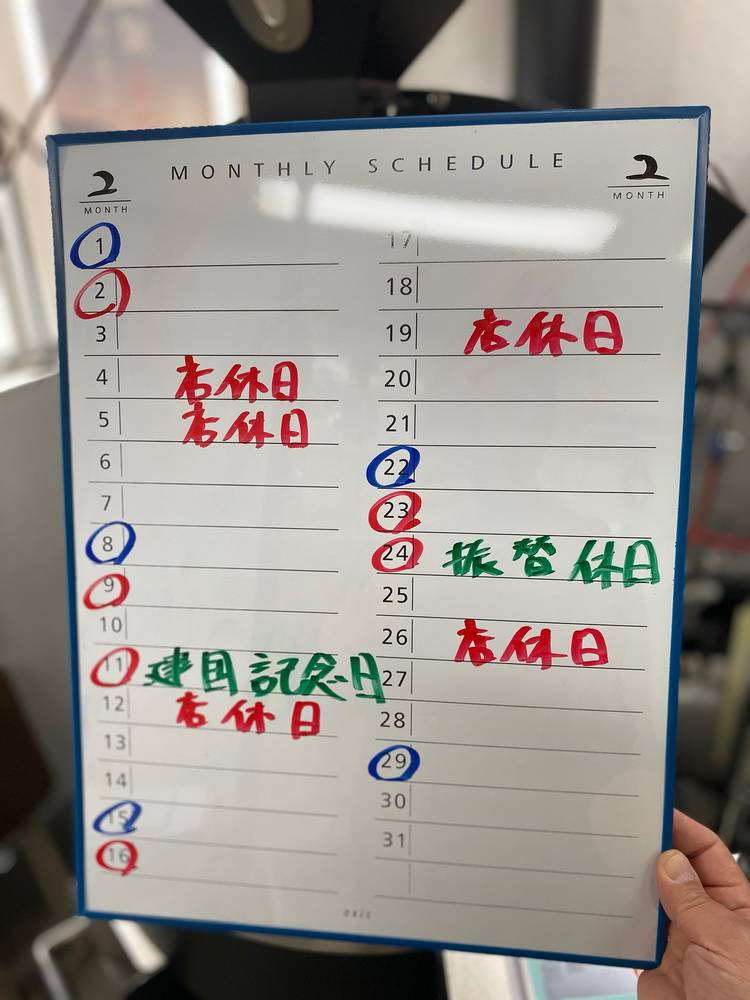 MONTHLY SCHEDULE
2
MONTH
2
MONTH
1
2
3
4 店休日
5 店休日
6
7
8
9
10
11 建国記念日
12 店休日
13
14
15
16
17
18
19 店休日
20
21
22
23
24 振替休日
25
26 店休日
27
28
29
30
31
axis